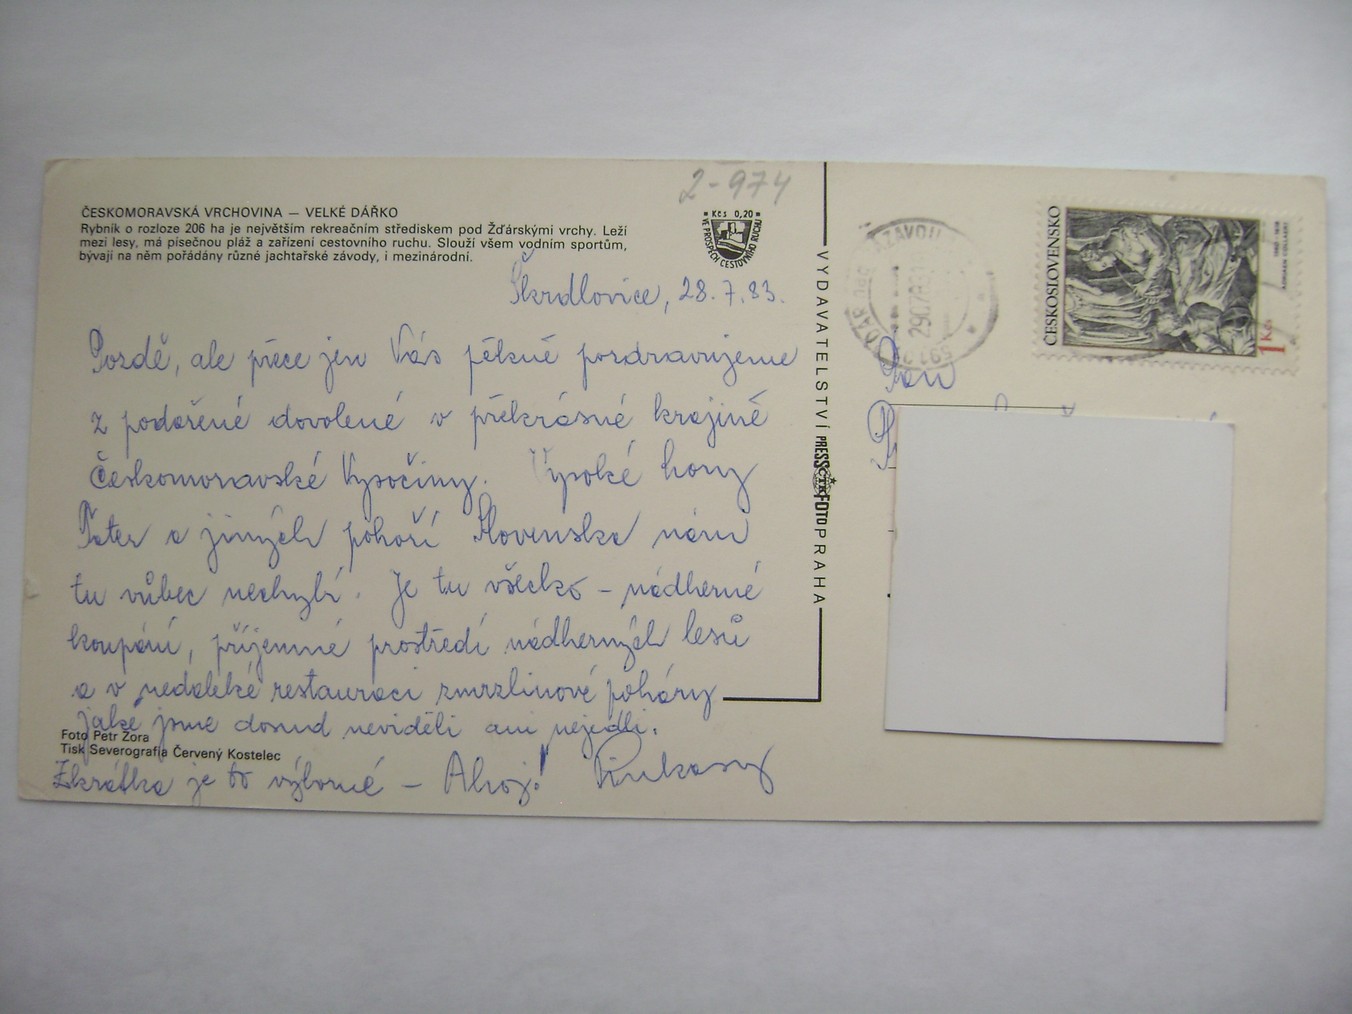 2-974
ČESKOMORAVSKÁ VRCHOVINA — VELKÉ DÁŘKO
Rybník o rozloze 206 ha je největším rekreačním střediskem pod Žďárskými vrchy. Leží
mezi lesy, má písečnou pláž a zařízení cestovního ruchu. Slouží všem vodním sportům,
bývají na něm pořádány různé jachtařské závody, i mezinárodní.
Kčs 0,20
VE PROSPĚCH CESTOVNÍHO RUCHU
Škrdlovice, 28.7.83.
Pozdě, ale přece jen Vás pěkně pozdravujeme
z podařené dovolené v překrásné krajině
Českomoravské Vysočiny. Vysoké hory
Tater a jiných pohoří Slovenska nám
tu vůbec nechybí. Je tu všecko – nádherné
koupání, příjemné prostředí nádherných lesů
a v nedaleké restauraci zmrzlinové poháry
jaké jsme dosud neviděli ani nejedli.
Zkrátka je to výborné – Ahoj!
Foto Petr Zora
Tisk Severografia Červený Kostelec
VYDAVATELSTVÍ PRESSFOTO PRAHA
ČTK
ČESKOSLOVENSKO
1 Kčs
ADRIAEN COLLAERT
SÁZAVOU
Pan